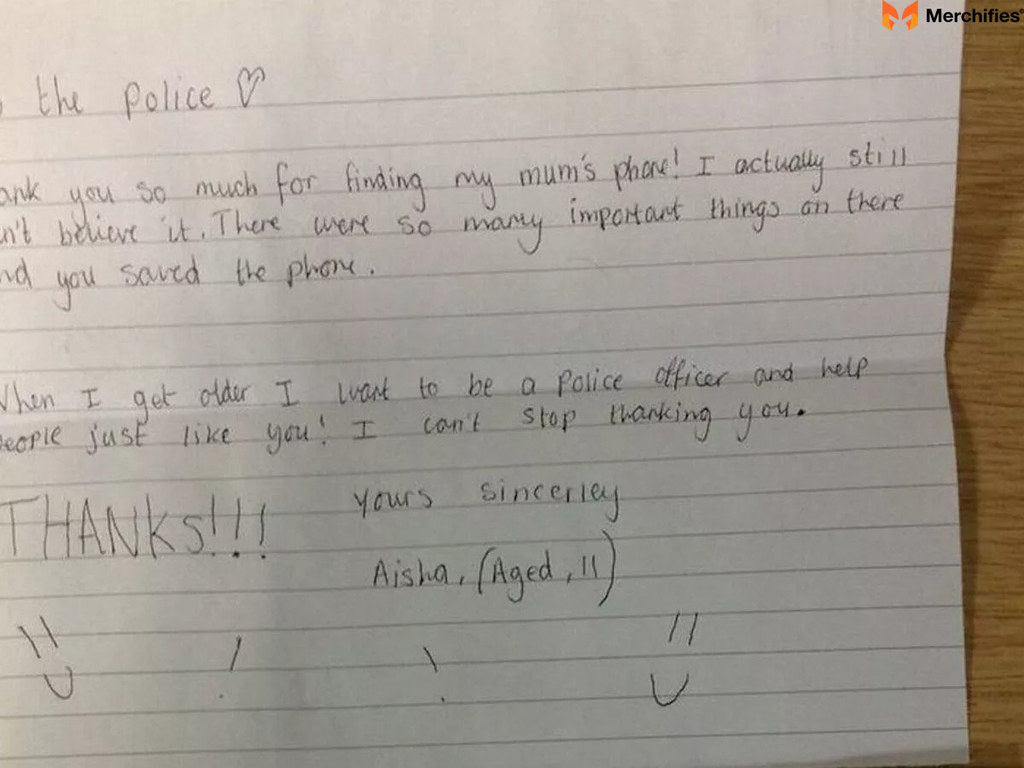 Merchifies
the police ♡
ank you so much for finding my mum's phone! I actually still
n't believe it. There were so many important things on there
nd you saved the phone.
When I get older I want to be a police officer and help
people just like you! I can't stop thanking you.
THANKS!!! yours sincerley
Aisha, (Aged, 11)